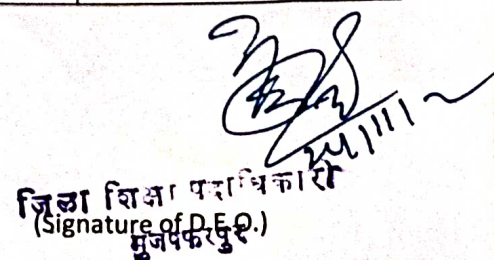 जिला शिक्षा पदाधिकारी
(Signature of D.E.O.)
मुजफ्फरपुर